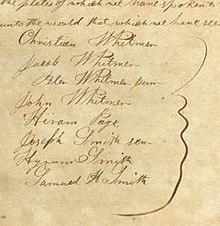 the plates of which we have spoken &
unto the world that which we have see
Christian Whitmer
Jacob Whitmer
Peter Whitmer jun
John Whitmer
Hiram Page
Joseph Smith sen
Hyrum Smith
Samuel H Smith